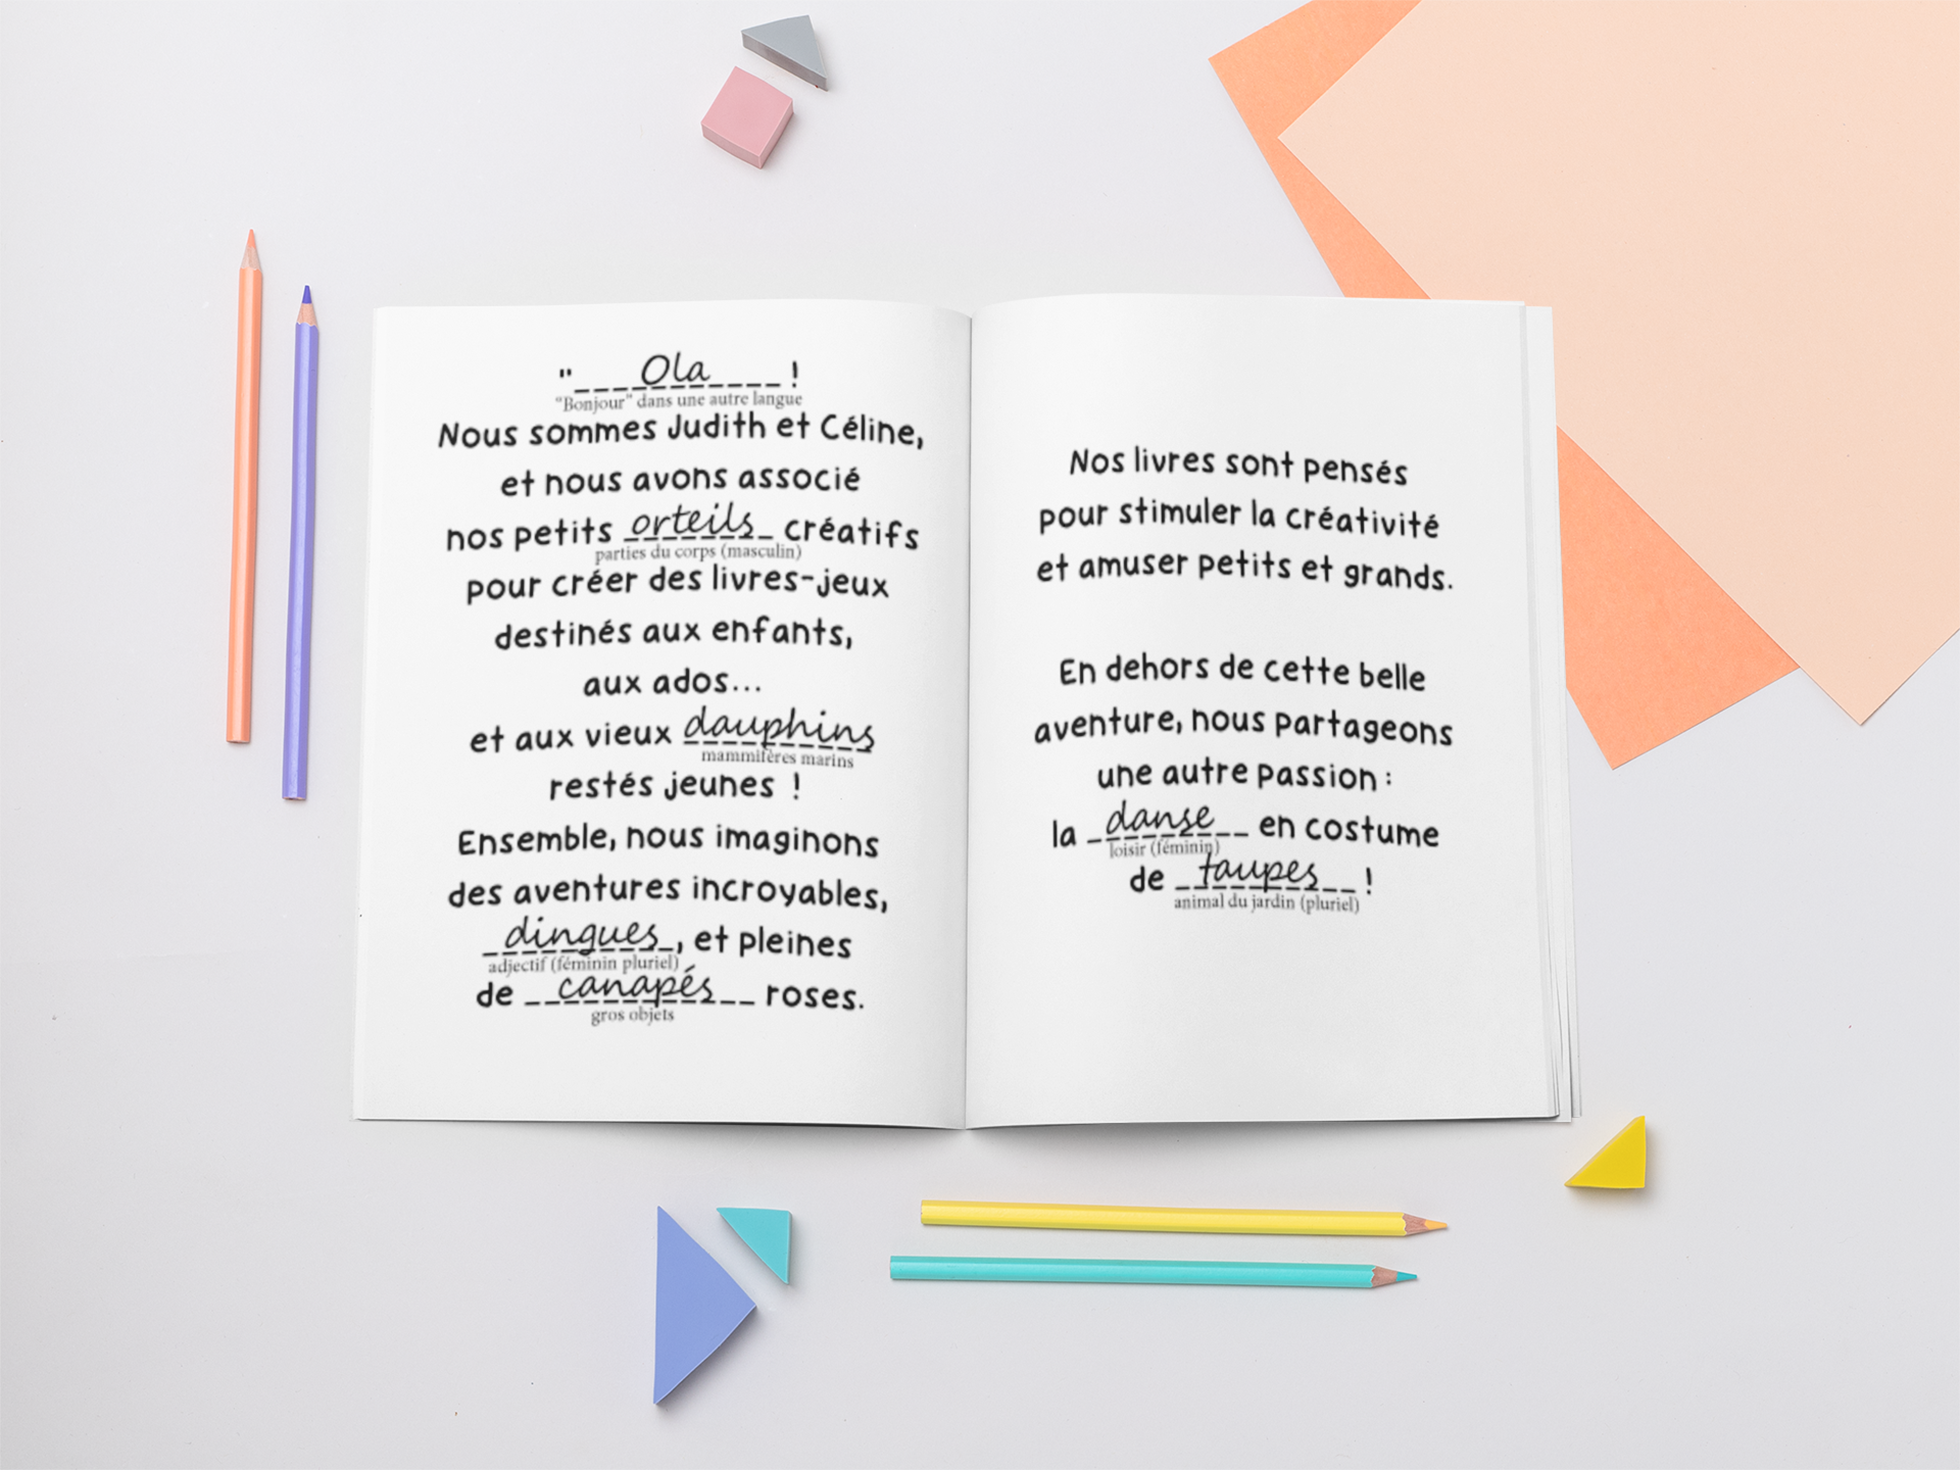 "____Ola____ !
"Bonjour" dans une autre langue
Nous sommes Judith et Céline,
et nous avons associé
nos petits orteils créatifs
parties du corps (masculin)
pour créer des livres-jeux
destinés aux enfants,
aux ados...
et aux vieux dauphins
mammifères marins
restés jeunes !
Ensemble, nous imaginons
des aventures incroyables,
dingues, et pleines
adjectif (féminin pluriel)
de canapés roses.
gros objets
Nos livres sont pensés
pour stimuler la créativité
et amuser petits et grands.
En dehors de cette belle
aventure, nous partageons
une autre passion :
la danse en costume
loisir (féminin)
de taupes !
animal du jardin (pluriel)